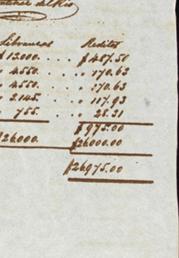 del Rio
Libranzas Reditos
$13000. . . . $487.50
" 4550. . . . " 170.63
" 4550. . . . " 170.63
" 3145. . . . " 117.93
" 755. . . . " 28.31
$975.00
26000. $26000.00
$26975.00